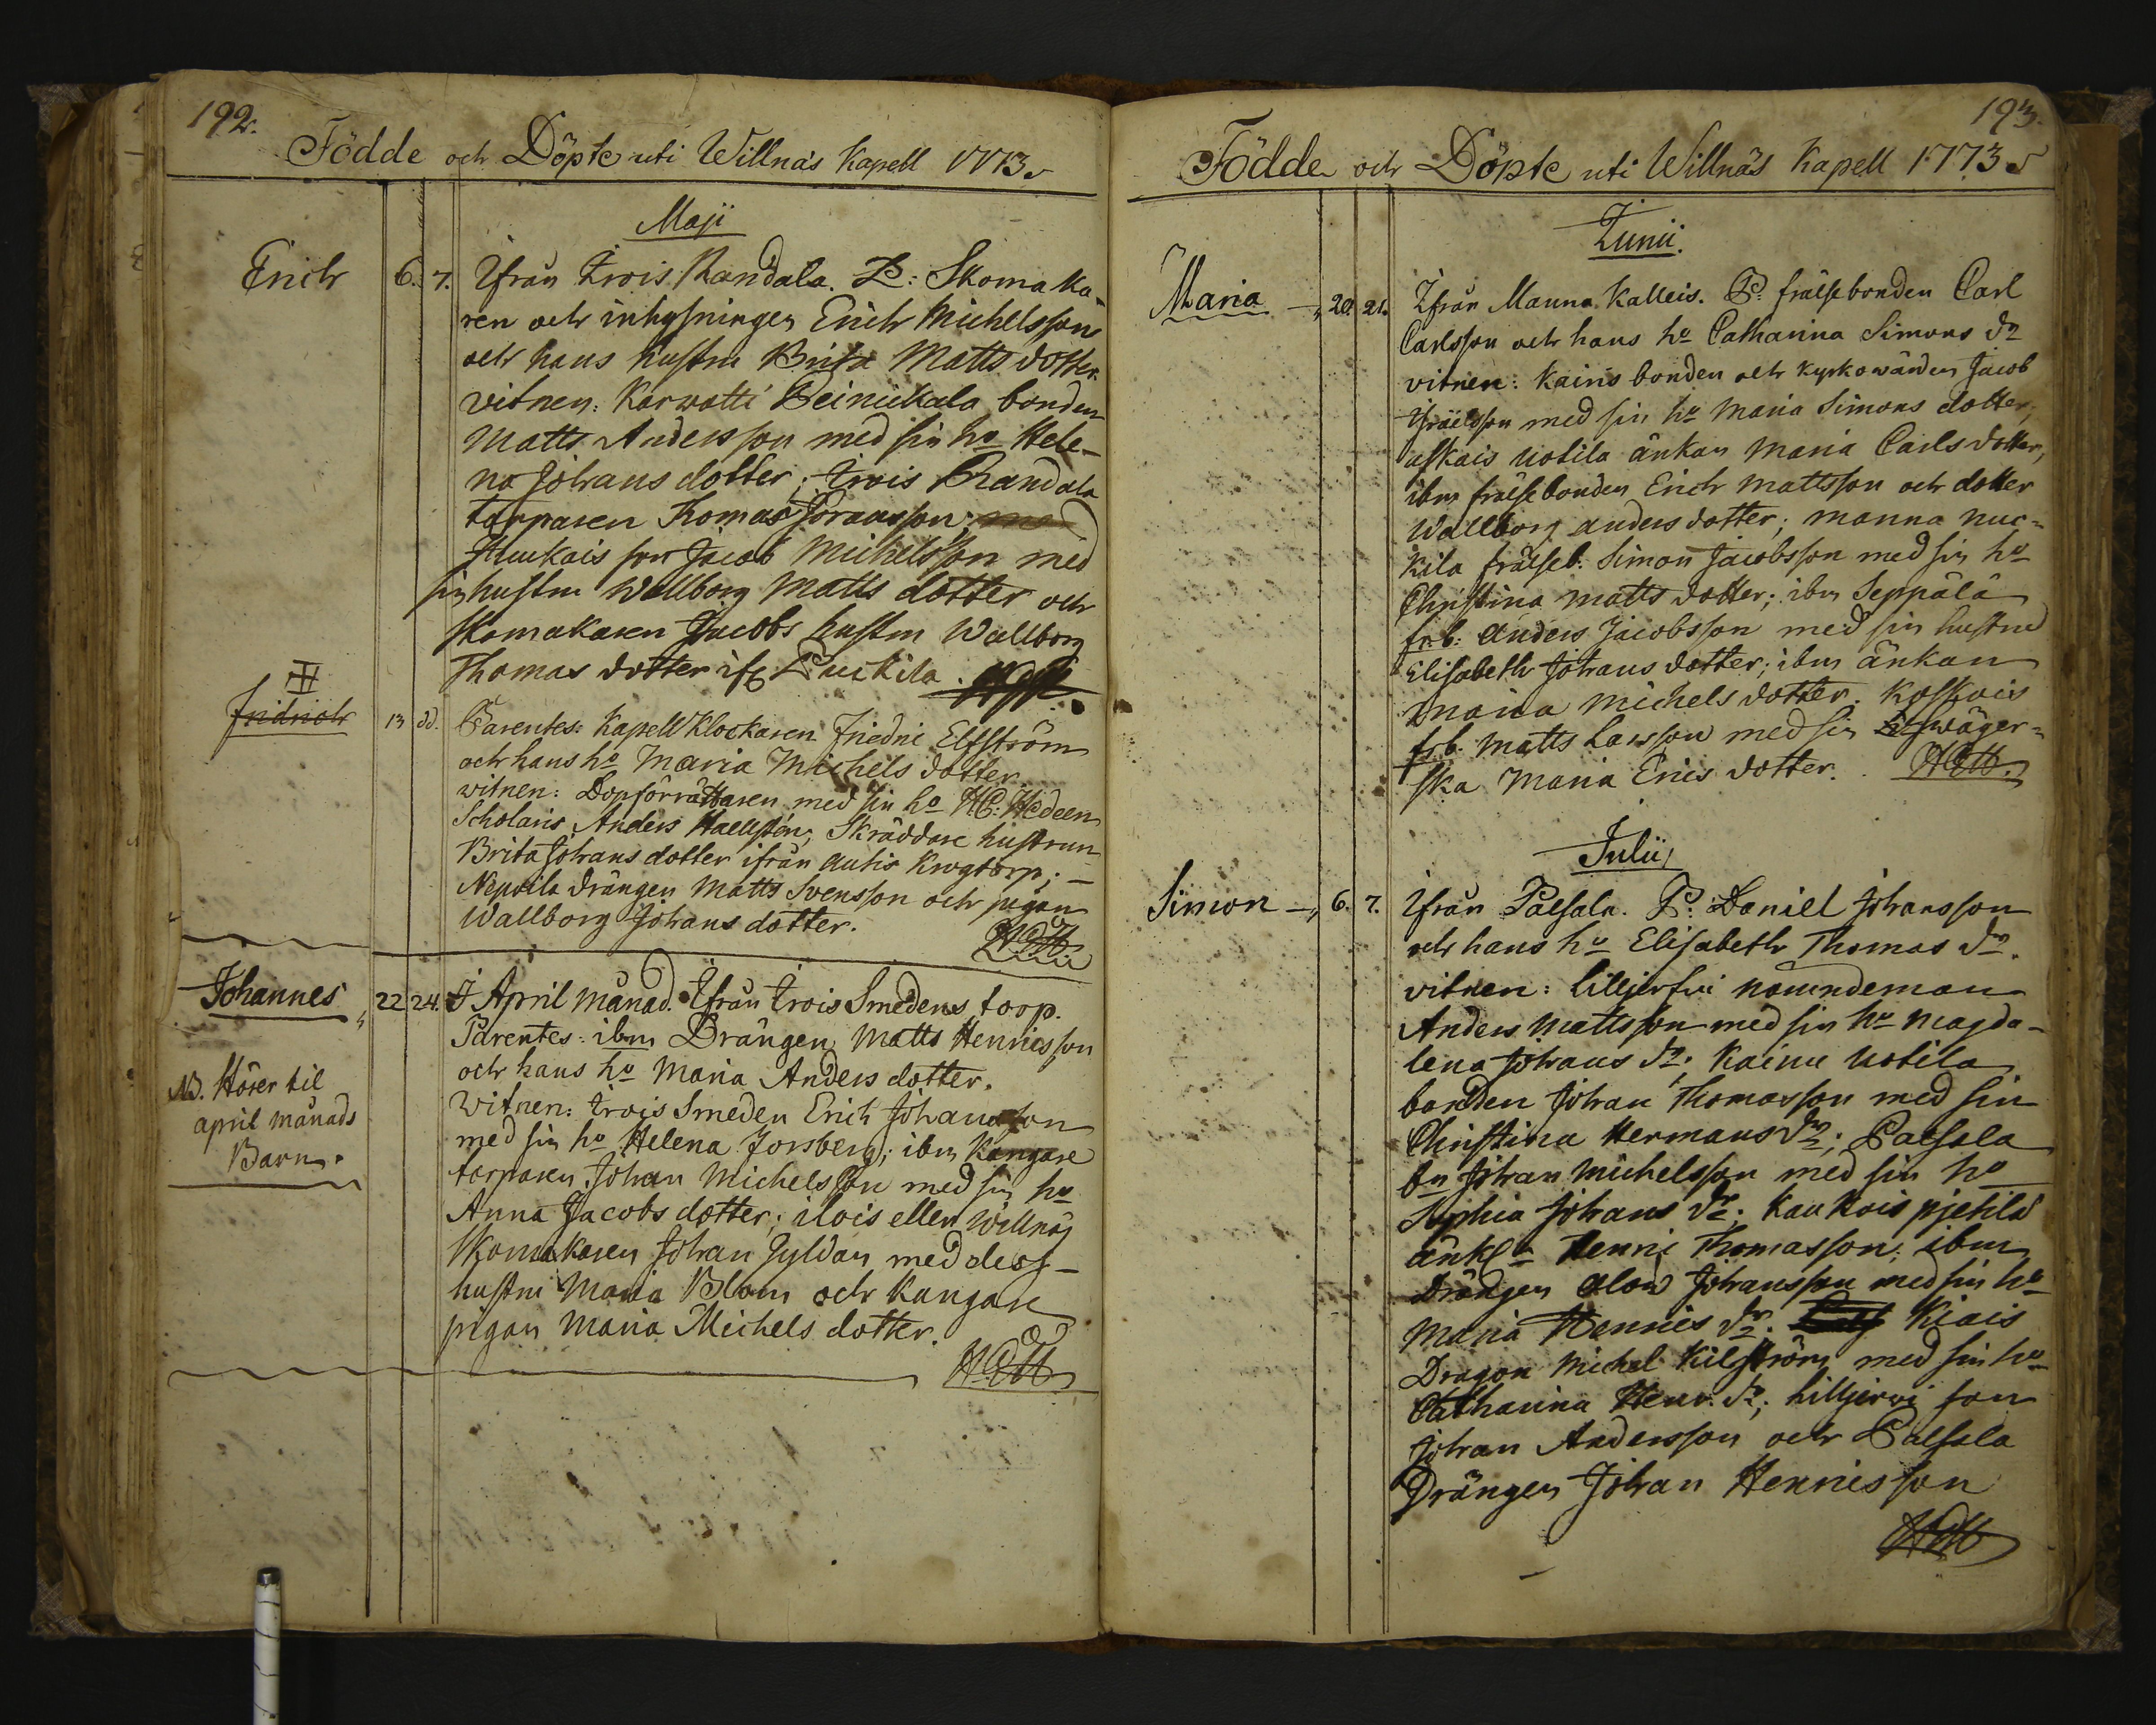 192.
Födde och Döpte uti Willnäs Kapell 1773.
Maji
Erich 6. 7. Ifrån Trois Randala. P: Skomaka-
ren och inhysningen Erich Michelsson
och hans hustru Brita Matts dotter.
vitnen: Karvatti Beinikala bonden
Matts Andersson med sin ho Hele-
na Johans dotter; Trois Randala
torparen Thomas Göransson;
son Jacob Michelsson med
sin hustru Wallborg Matts dotter och
skomakaren Jacobs hustru Wallborg
Thomas dotter if
Fridrich 13 dd. Parentes: Kapell Klockaren Friedric Elfström
och hans ho Maria Michels dotter
witnen: Dopförrättaren med sin ho H.C. Hedeen
Scholaris Anders Haellstén; Skräddare hustrun
Brita Johans dotter ifrån Autis Krogtorp; –
Nepoila drängen Matts Svensson och pigan
Wallborg Johans dotter.
Johannes 22 24. I April månad. Ifrån Trois Smedens torp.
Parentes: ibm Drängen Matts Henricsson
och hans ho Maria Anders dotter.
NB. Hörer til
april månads
Barn.
Witnen: Trois Smeden Erich Johansson
med sin ho Helena Forsberg; ibm Kangare
torparen Johan Michelsson med sin ho
Anna Jacobs dotter; ilois eller Willnäs
Skomakaren Johan Gyldan med dess
hustru Maria Blom och Kangare
pigan Maria Michels dotter.
193.
Födde och Döpte uti Willnäs Kapell 1773
Junii.
Maria 20. 21. Ifrån Manna Kalleis. P: frälsebonden Carl
Carlsson och hans ho Catharina Simons dr
vitnen: Kainis bonden och kyrkowärden Jacob
Israelsson med sin ho Maria Simons dotter,
askais Uotila änkan Maria Carls dotter,
ibm frälsebonden Erich Mattsson och dotter
Wallborg Anders dotter; Manna Nuc=
kila frälseb: Simon Jacobsson med sin ho
Christina Matts dotter; ibm Seppälä
fr.b: Anders Jacobsson med sin hustru
Elisabeth Johans dotter; ibm änkan
Maria Michels dotter. Koskois
frb. Matts Larsson med sin swäger=
ska Maria Erics dotter.
Julii,
Simon 6. 7. Ifrån Palsala. P: Daniel Johansson
och hans ho Elisabeth Thomas dr.
vitnen: nämndeman
Anders Mattsson med sin ho Magda-
lena Johans dr; Kainu Uotila
bonden Johan Thomasson med sin
Christina Hermans dr; Palsala
bn Johan Michelsson med sin ho
Sophia Johans dr; Kaukois pjetilä
Henric Thomasson; ibm
Drängen Olow Johansson med sin ho
Maria Henrics dr. Kiais
Dragon Michel Kilström med sin ho
Catharina Henr. dr; Lilljervi son
Johan Andersson och Palsala
Drängen Johan Henricsson